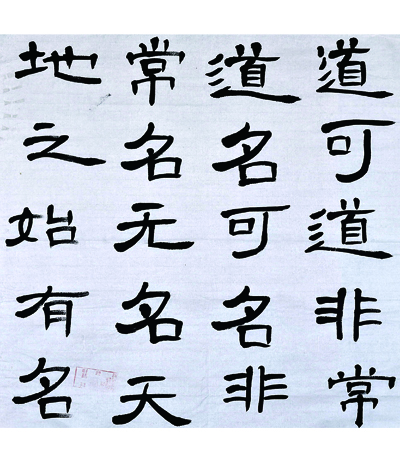 道可道非常
道名可名非
常名无名天
地之始有名